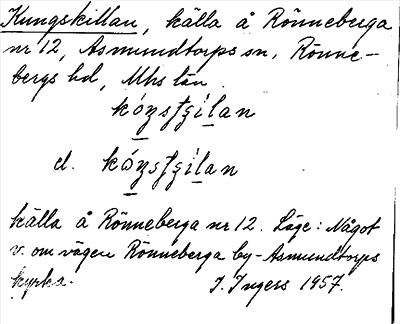 Kungskillan, källa å Rönneberga
nr 12, Asmundtorps sn, Rönne-
bergs hd, Mhs län
d.
källa å Rönneberga nr 12. Läge: Något
v. om vägen Rönneberga by-Asmundtorps
kyrka. I. Ingers 1957.